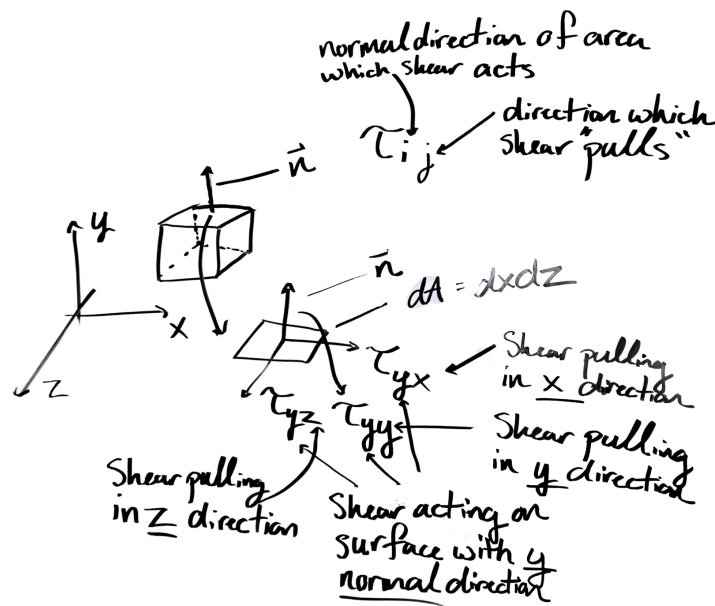 normal direction of area
which shear acts
τij
direction which
shear "pulls"
n
y
x
z
n
dA = dxdz
τyx
Shear pulling
in x direction
τyz
τyy
Shear pulling
in y direction
Shear pulling
in z direction
Shear acting on
surface with y
normal direction